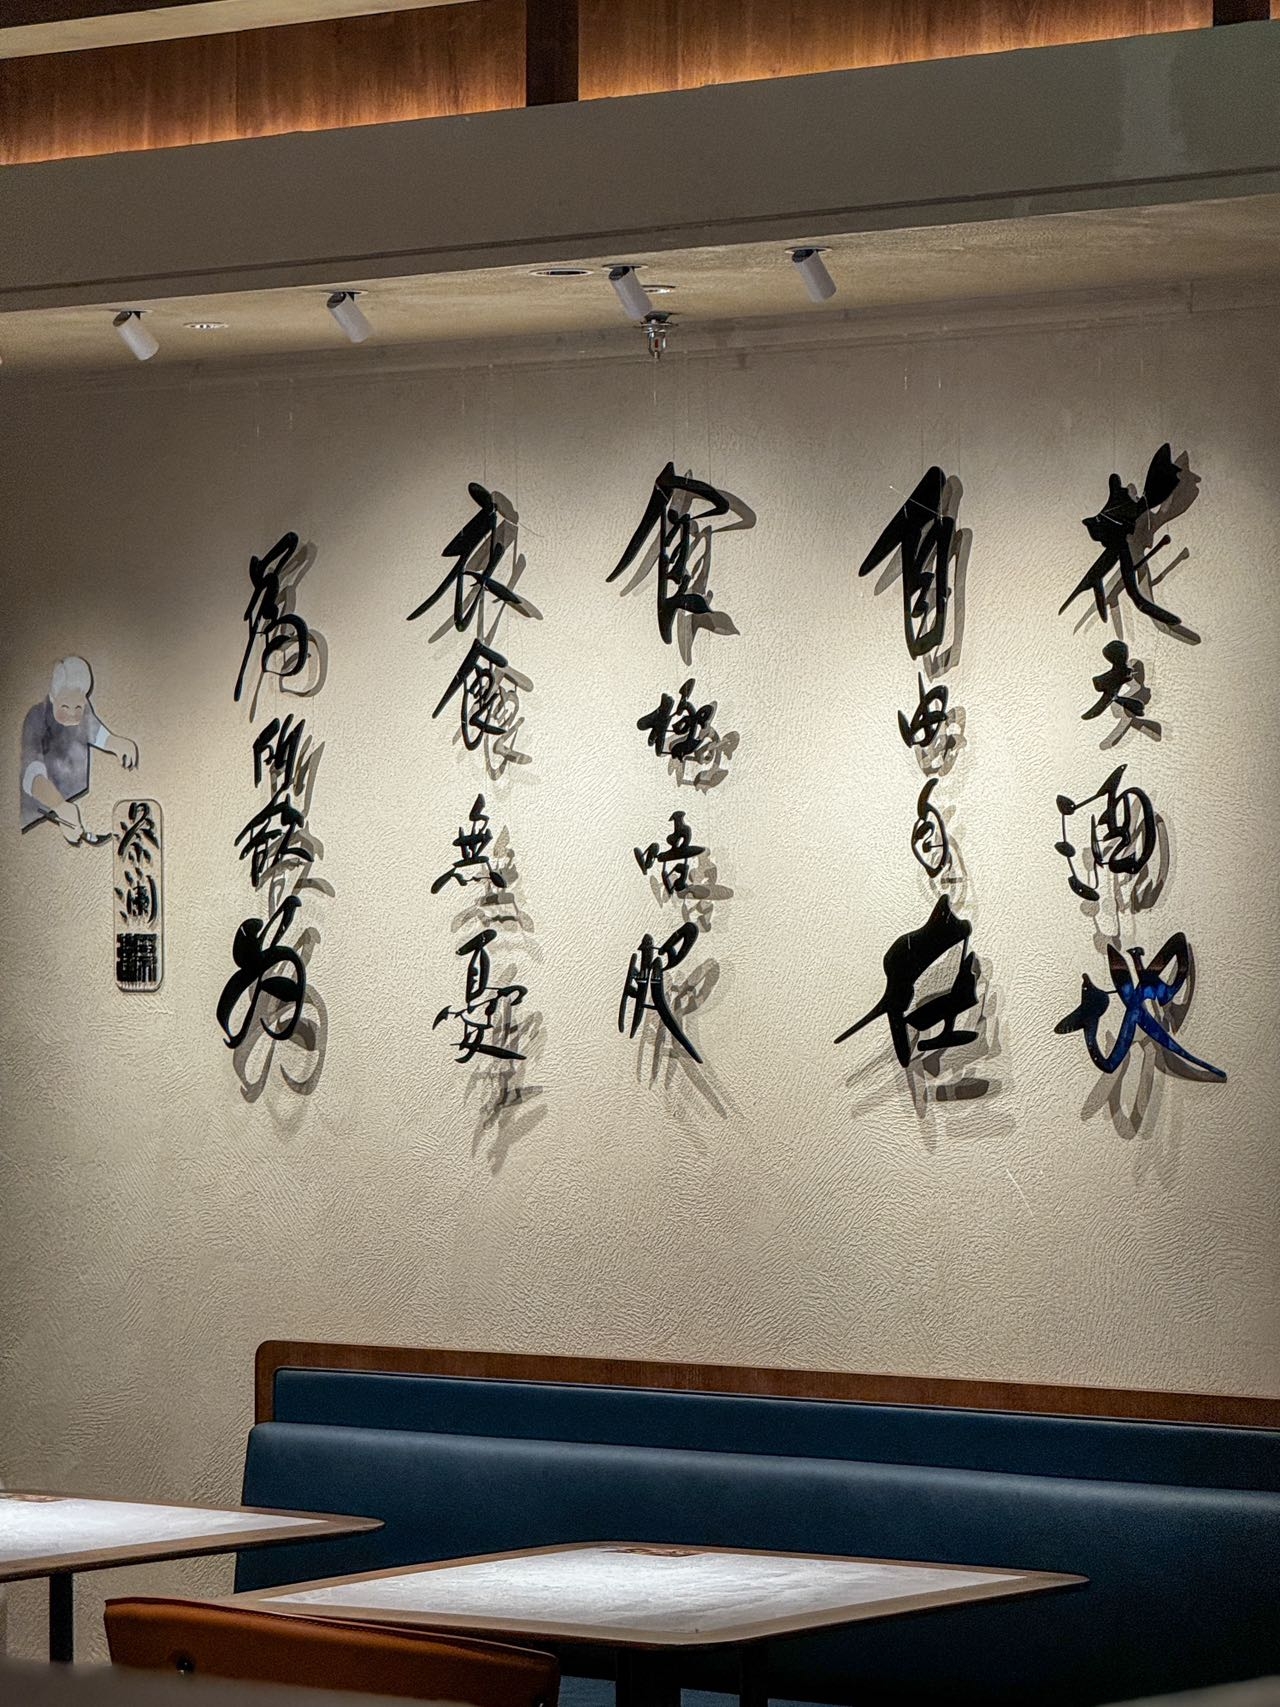 花天酒地
自由自在
食極唔肥
衣食無憂
為所欲為
蔡瀾